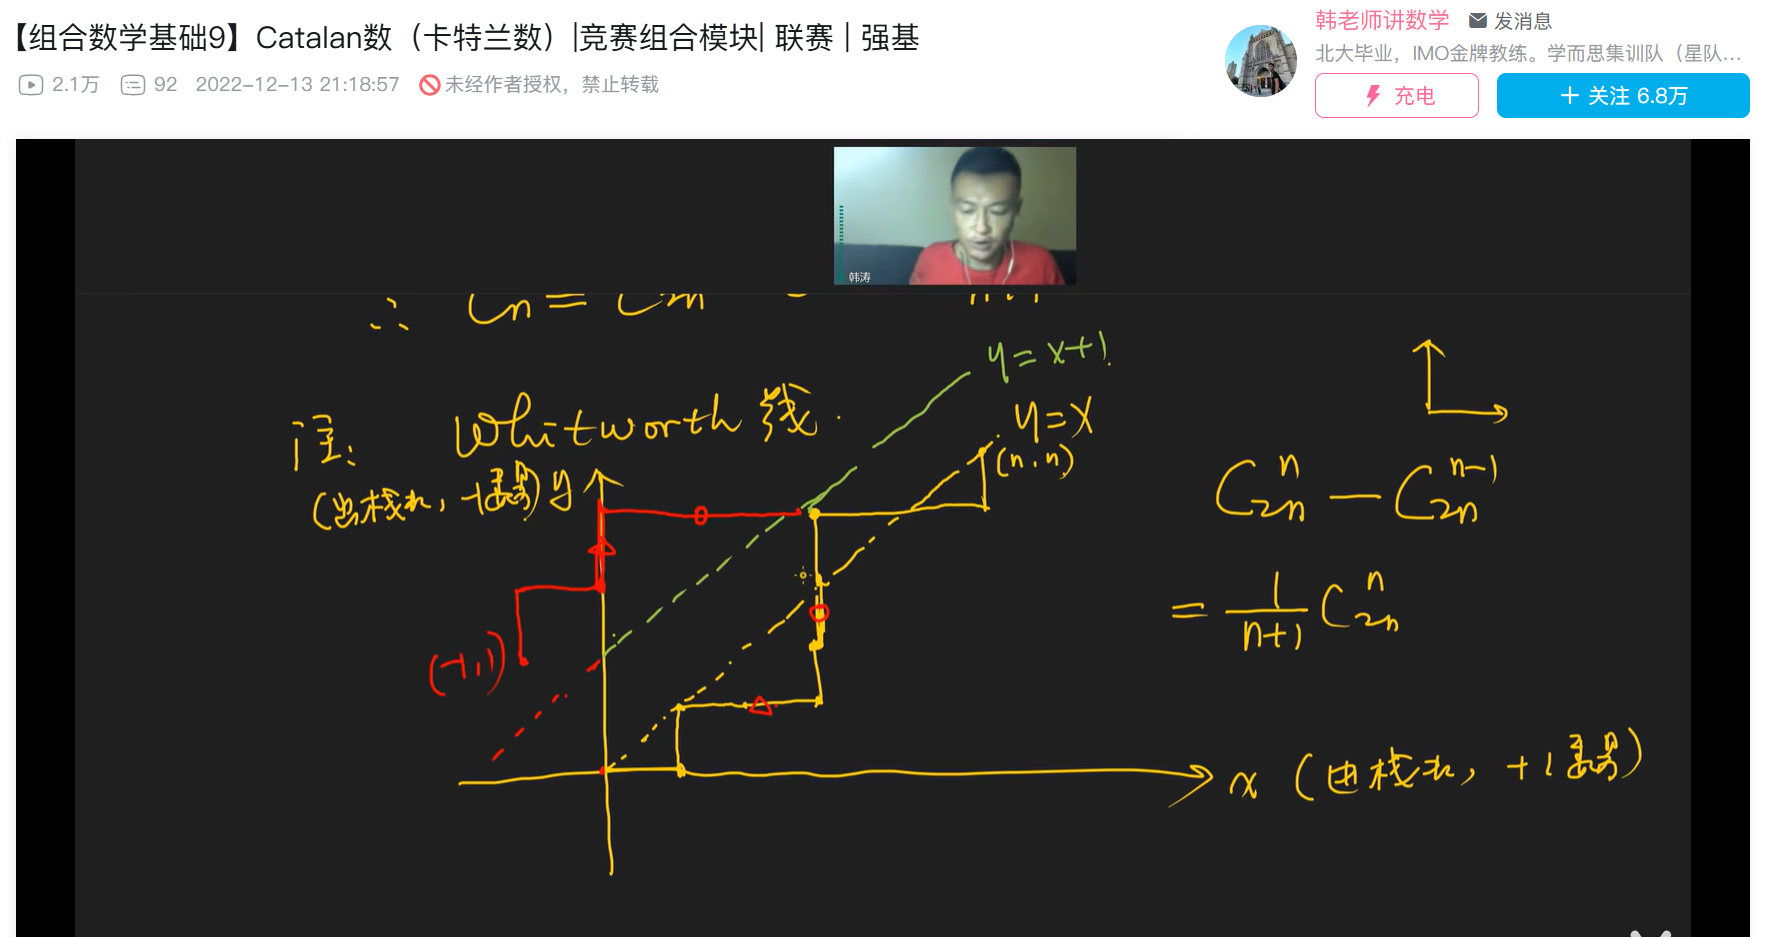 【组合数学基础9】Catalan数（卡特兰数）|竞赛组合模块| 联赛 | 强基
2.1万 92 2022-12-13 21:18:57 未经作者授权，禁止转载
韩老师讲数学 发消息
北大毕业，IMO金牌教练。学而思集训队（星队...
充电
+ 关注 6.8万
韩涛
y=x+1
注: Whitworth 线.
y=x
(n,n)
y
(-1,1)
C_{2n}^{n} - C_{2n}^{n-1}
= \frac{1}{n+1} C_{2n}^{n}
x